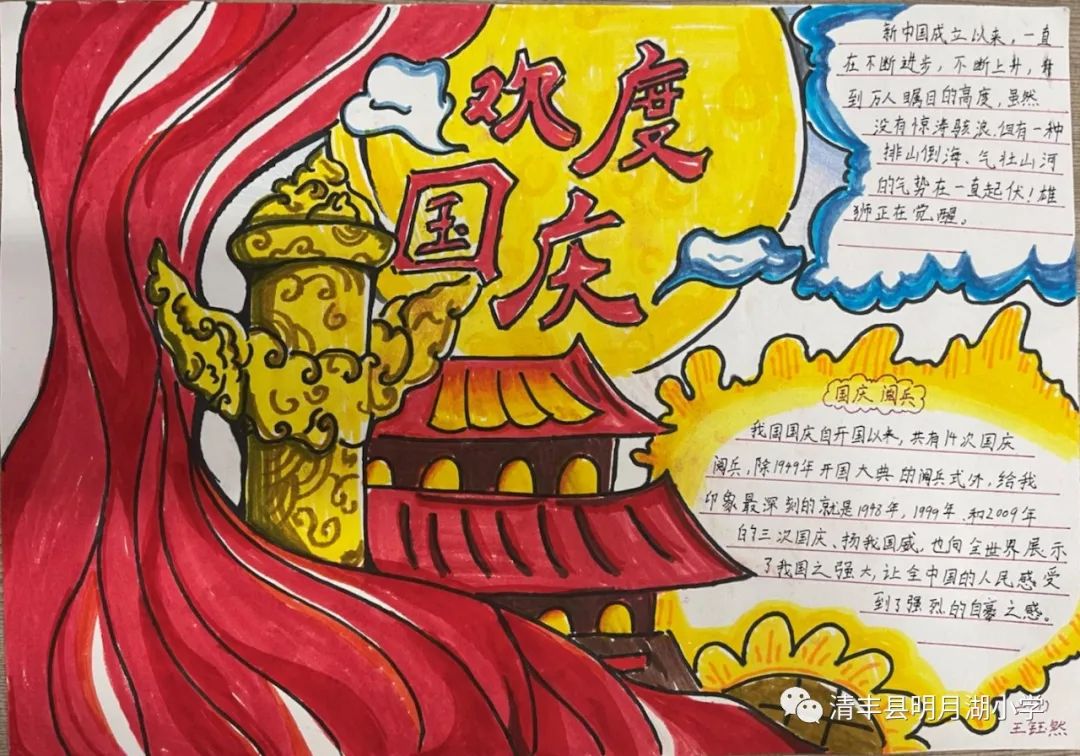 欢度
国庆
新中国成立以来，一直
在不断进步，不断上升，
到万人瞩目的高度，虽然
没有惊涛骇浪，但有一种
排山倒海、气壮山河
的气势在一直起伏！雄
狮正在觉醒。
国庆阅兵
我国国庆自开国以来，共有14次国庆
阅兵，除1949年开国大典的阅兵式外，给我
印象最深刻的就是1948年，1999年、和2009年
的三次国庆、扬我国威，也向全世界展示
了我国之强大，让全中国的人民感受
到了强烈的自豪之感。
清丰县明月湖小学
王钰然